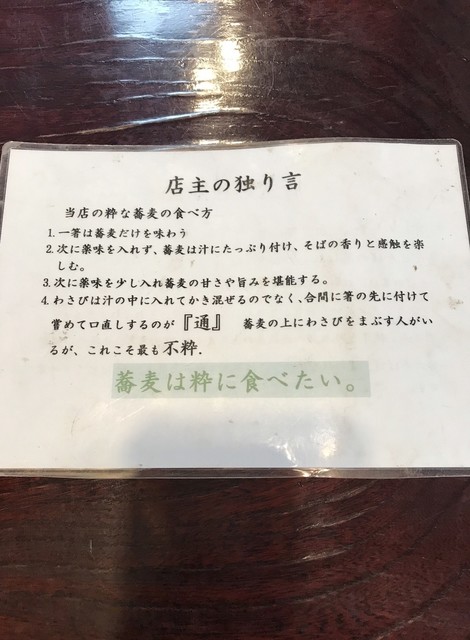 店主の独り言
当店の粋な蕎麦の食べ方
1.一箸は蕎麦だけを味わう
2.次に薬味を入れず、蕎麦は汁にたっぷり付け、そばの香りと感触を楽
しむ。
3.次に薬味を少し入れ蕎麦の甘さや旨みを堪能する。
4.わさびは汁の中に入れてかき混ぜるのでなく、合間に箸の先に付けて
嘗めて口直しするのが『通』 蕎麦の上にわさびをまぶす人がい
るが、これこそ最も不粋.
蕎麦は粋に食べたい。